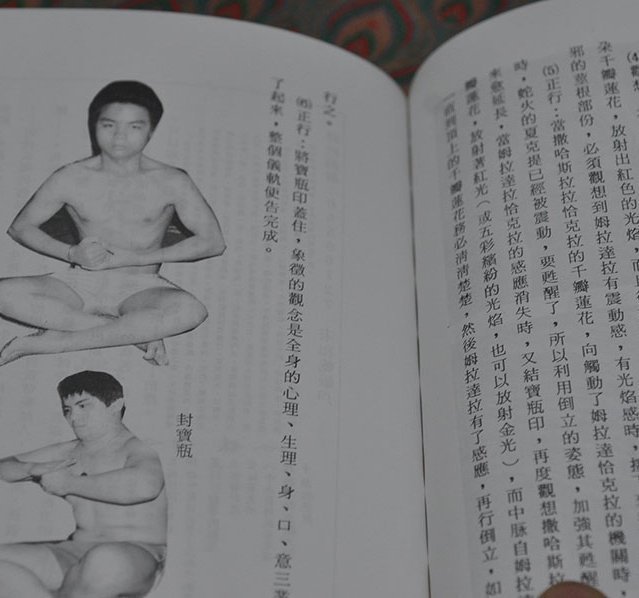 (4)觀想
朵千瓣蓮花，放射出紅色的光焰，而
邪的莖根部份，必須觀想到姆拉達拉有震動感，有光焰感時，
(5)正行：當撒哈斯拉拉恰克拉的千瓣蓮花，向觸動了姆拉達恰克拉的機關時，
時，蛇火的夏克提已經被震動，要甦醒了，所以利用倒立的姿態，加強其甦醒
來慈延長，當姆拉達拉恰克拉的感應消失時，又結寶瓶印，再度觀想撒哈斯拉
瓣蓮花，放射著紅光（或五彩繽紛的光焰，也可以放射金光），而中脉自姆拉達
一直到頂上的千瓣蓮花務必清清楚楚，然後姆拉達拉有了感應，再行倒立，如
行之。
(6)正行：將寶瓶印蓋住，象徵的觀念是全身的心理、生理、身、口、意三業
了起來，整個儀軌便告完成。
封寶瓶